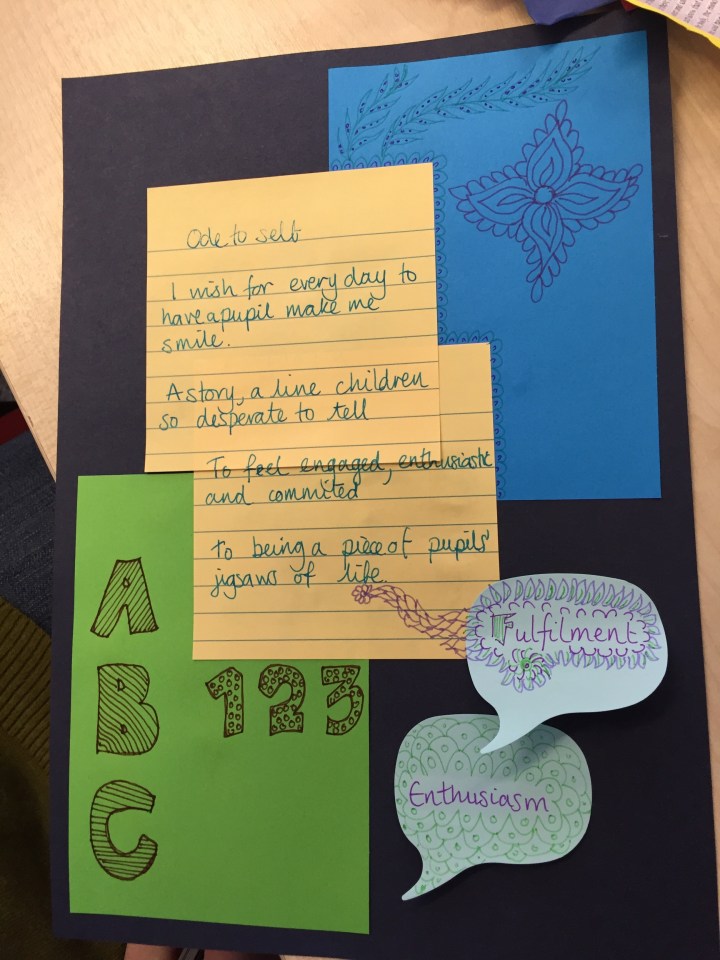 Ode to self
I wish for every day to
have a pupil make me
smile.
A story, a line children
so desperate to tell
To feel engaged, enthusiastic
and commited
To being a piece of pupils'
jigsaws of life.
A
B
C
123
Fulfilment
Enthusiasm